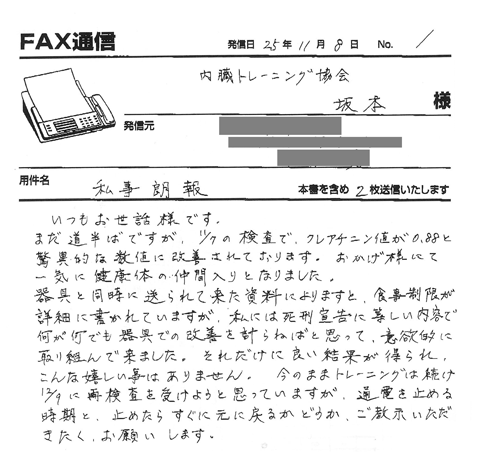 FAX通信
発信日 25年 11月 8日 No. 1
内臓トレーニング協会
坂本 様
発信元
用件名 私事朗報 本書を含め 2枚送信いたします
いつもお世話様です。
まだ道半ばですが、11/7の検査で、クレアチニン値が0.88と
驚異的な数値に改善されております。おかげ様にて
一気に健康体の仲間入りとなりました。
器具と同時に送られて来た資料によりますと、食事制限が
詳細に書かれていますが、私には死刑宣告に等しい内容で
何が何でも器具での改善を計らねばと思って、意欲的に
取り組んで来ました。それだけに良い結果が得られ、
こんな嬉しい事はありません。今のままトレーニングは続け
12/9に再検査を受けようと思っていますが、通電を止める
時期と、止めたらすぐに元に戻るかどうか、ご教示いただ
きたく、お願いします。